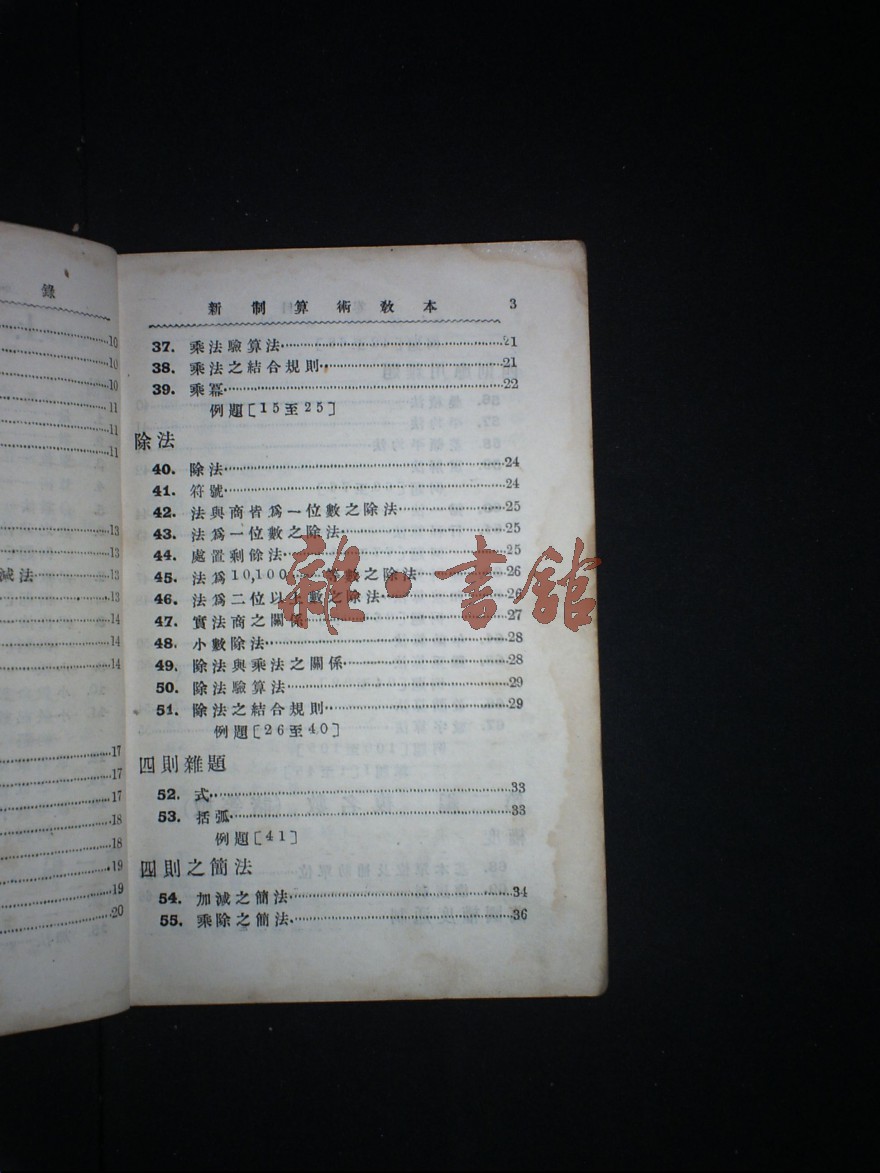 錄
10
10
10
11
11
11
13
13
減法 13
13
14
14
17
17
17
18
18
19
20
新制算術教本 3
37. 乘法驗算法 21
38. 乘法之結合規則 21
39. 乘冪 22
例題[15至25]
除法
40. 除法 24
41. 符號 24
42. 法與商皆爲一位數之除法 25
43. 法爲一位數之除法 25
44. 處置剩餘法 25
45. 法爲10,100……等數之除法 26
46. 法爲二位以上數之除法 26
47. 實法商之關係 27
48. 小數除法 28
49. 除法與乘法之關係 28
50. 除法驗算法 29
51. 除法之結合規則 29
例題[26至40]
四則雜題
52. 式 33
53. 括弧 33
例題[41]
四則之簡法
54. 加減之簡法 34
55. 乘除之簡法 36
雜·書館